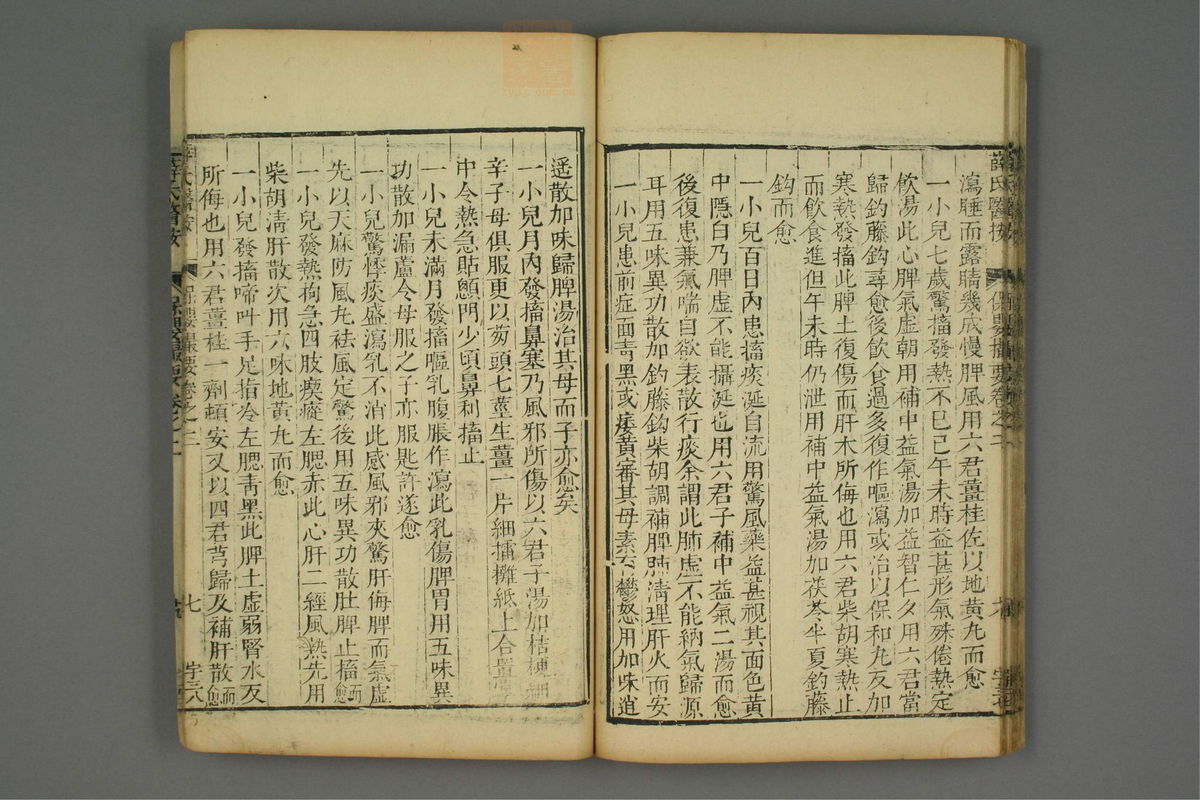 薛氏醫按 保嬰撮要卷之二
瀉睡而露睛幾成慢脾風用六君薑桂佐以地黃丸而愈
一小兒七歲驚搐發熱不已巳午未時益甚形氣殊倦熱定
飲湯此心脾氣虛朝用補中益氣湯加益智仁夕用六君當
歸鈎藤鈎尋愈後飲食過多復作嘔瀉或治以保和丸反加
寒熱發搐此脾土復傷而肝木所侮也用六君柴胡寒熱止
而飲食進但午未時仍泄用補中益氣湯加茯苓半夏鈎藤
鈎而愈
一小兒百日內患搐痰涎自流用驚風藥益甚視其面色黃
中隱白乃脾虛不能攝涎也用六君子補中益氣二湯而愈
後復患兼氣喘自欲表散行痰余謂此肺虛不能納氣歸源
耳用五味異功散加鈎藤鈎柴胡調補脾肺清理肝火而安
一小兒患前症面青黑或痿黃審其母素有鬱怒用加味逍
遥散加味歸脾湯治其母而子亦愈矣
一小兒月內發搐鼻塞乃風邪所傷以六君子湯加桔梗細
辛子母俱服更以葱頭七莖生薑一片細擂攤紙上合置
中令熱急貼顖門少頃鼻利搐止
一小兒未滿月發搐嘔乳腹脹作瀉此乳傷脾胃用五味異
功散加漏蘆令母服之子亦服匙許遂愈
一小兒驚悸痰盛瀉乳不消此感風邪夾驚肝侮脾而氣虛
先以天麻防風丸祛風定驚後用五味異功散壯脾止搐而愈
一小兒發熱拘急四肢瘈瘲左腮赤此心肝二經風熱先用
柴胡清肝散次用六味地黃丸而愈
一小兒發搐啼叫手足指冷左腮青黑此脾土虛弱腎水反
所侮也用六君薑桂一劑頓安又以四君芎歸及補肝散而愈
薛氏醫按 保嬰撮要卷之二 七